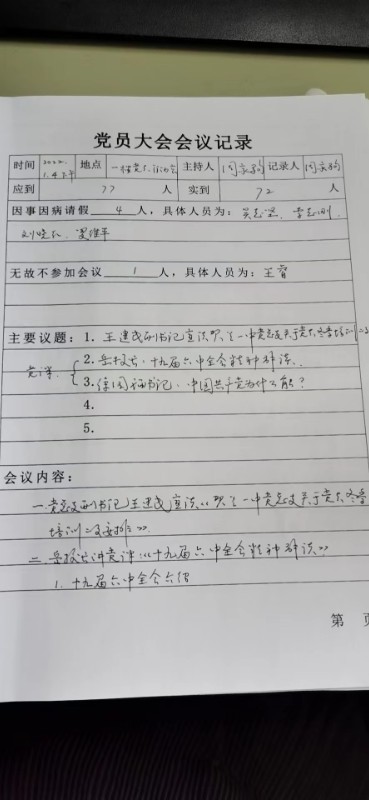 党员大会会议记录
时间 2022.1.4下午 地点 一楼党员活动室 主持人 记录人
应到 77 人 实到 72 人
因事因病请假 4 人，具体人员为：吴志坚、李志刚、
刘晓红、
无故不参加会议 1 人，具体人员为：王睿
主要议题：1. 王建民副书记宣读职工一中党总支关于党员冬季培训
党课 2. 岳校长：十九届六中全会精神解读
3. 书记：中国共产党为什么能？
4.
5.
会议内容：
一、党总支副书记王建民宣读《职工一中党总支关于党员冬季
培训的安排》
二、岳校长讲党课《十九届六中全会精神解读》
1. 十九届六中全会介绍
第 页